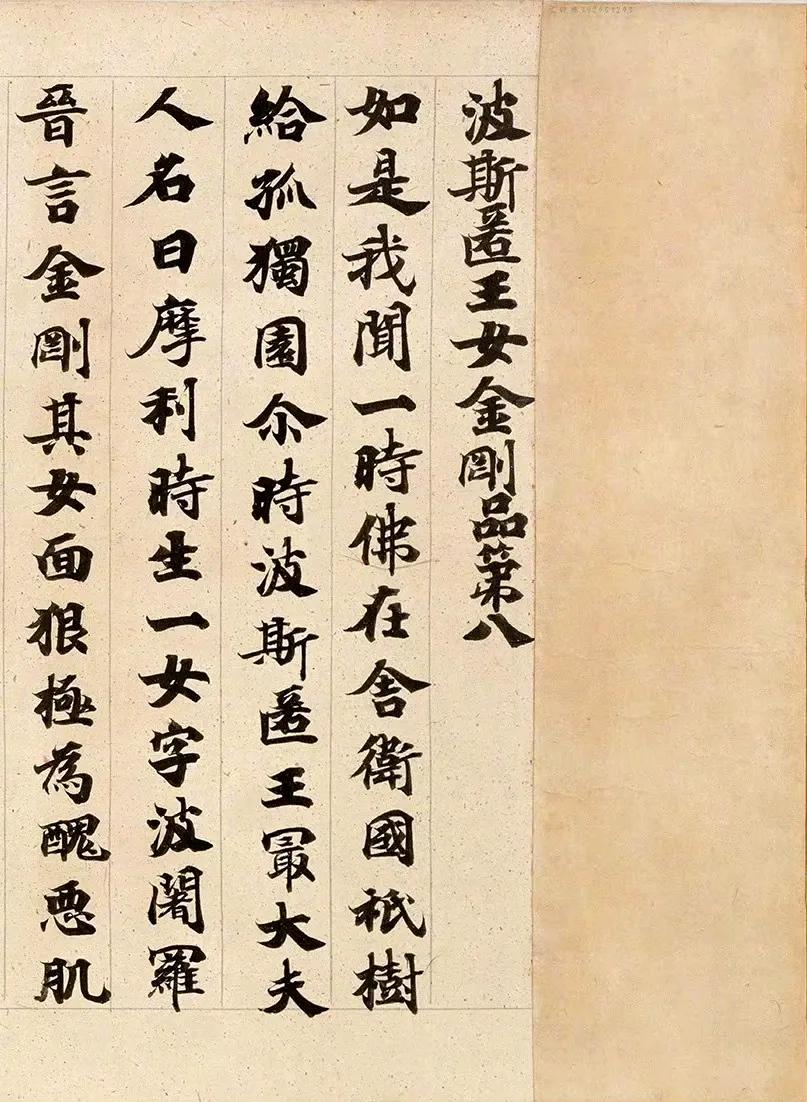 波斯匿王女金剛品第八
如是我聞一時佛在舍衛國祇樹
給孤獨園尒時波斯匿王冣大夫
人名曰摩利時生一女字波闍羅
晉言金剛其女面狠極為醜惡肌